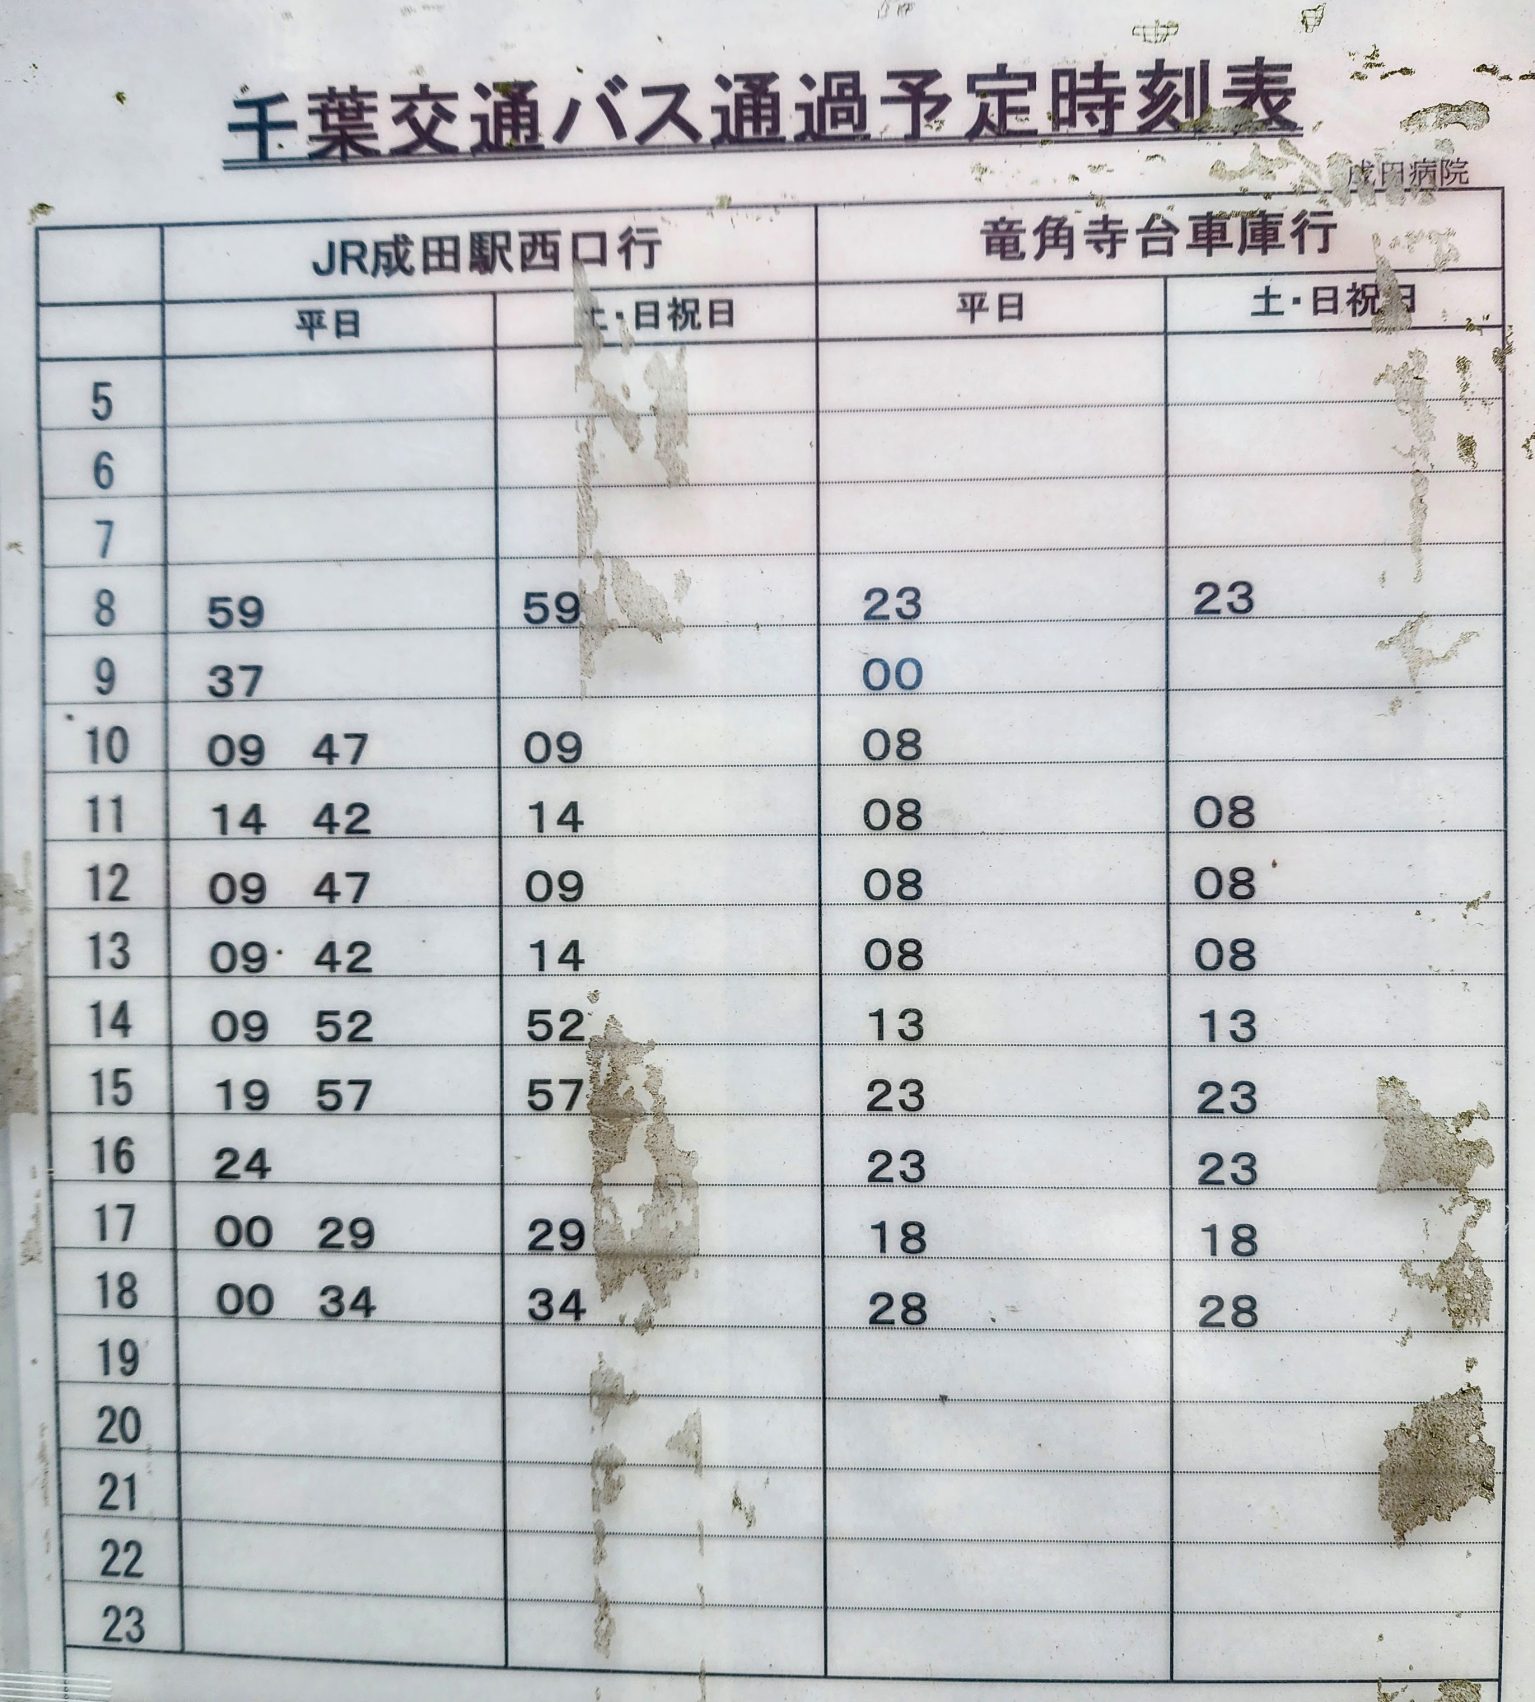 千葉交通バス通過予定時刻表
成田病院
JR成田駅西口行 竜角寺台車庫行
平日 土・日祝日 平日 土・日祝日
5
6
7
8 59 59 23 23
9 37 00
10 09 47 09 08
11 14 42 14 08 08
12 09 47 09 08 08
13 09 42 14 08 08
14 09 52 52 13 13
15 19 57 57 23 23
16 24 23 23
17 00 29 29 18 18
18 00 34 34 28 28
19
20
21
22
23